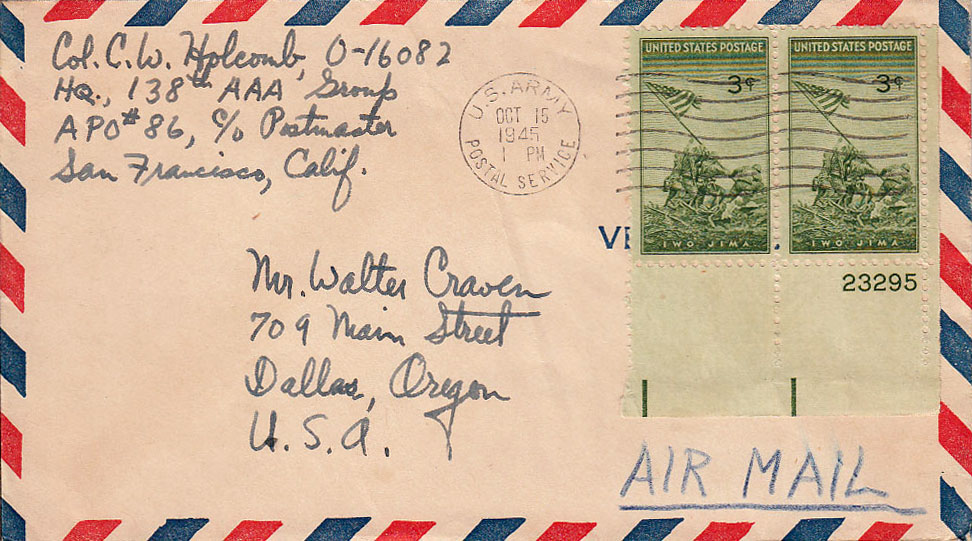 Col. C. W. Holcomb, O-16082
HQ., 138th AAA Group
APO #86, c/o Postmaster
San Francisco, Calif.
U.S. ARMY
OCT 15
1945
1 PM
POSTAL SERVICE
UNITED STATES POSTAGE
3¢
IWO JIMA
UNITED STATES POSTAGE
3¢
IWO JIMA
23295
Mr. Walter Craven
709 Main Street
Dallas, Oregon
U.S.A.
AIR MAIL